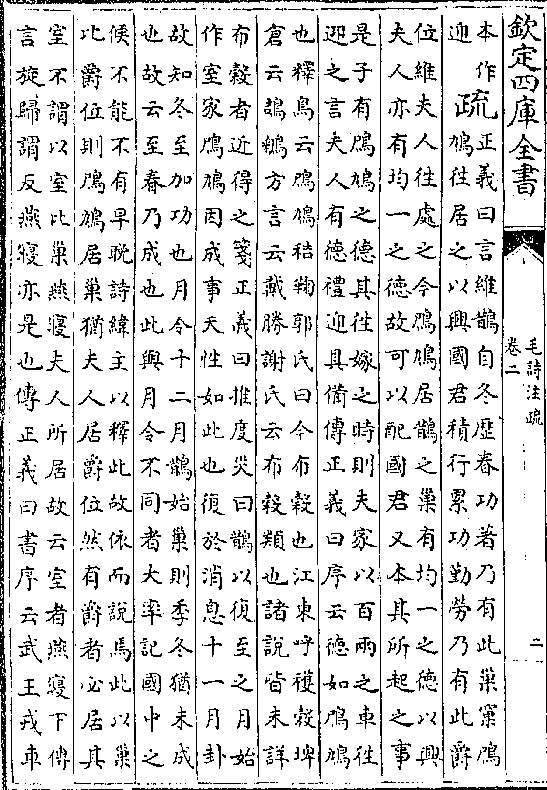 欽定四庫全書
毛詩注疏
卷二
二
本作
迎
疏
正義曰言維鵲自冬歷春功著乃有此巢窠鳲
鳩往居之以興國君積行累功勤勞乃有此爵
位維夫人往處之今鳲鳩居鵲之巢有均一之德以興
夫人亦有均一之德故可以配國君又本其所起之事
是子有鳲鳩之德其往嫁之時則夫家以百兩之車往
迎之言夫人有德禮迎具備傳正義曰序云德如鳲鳩
也釋鳥云鳲鳩秸鞠郭氏曰今布穀也江東呼穫穀埤
倉云鴶鵴方言云戴勝謝氏云布穀類也諸說皆未詳
布穀者近得之箋正義曰推度災曰鵲以復至之月始
作室家鳲鳩因成事天性如此也復於消息十一月卦
故知冬至加功也月令十二月鵲始巢則季冬猶未成
也故云至春乃成也此與月令不同者大率記國中之
候不能不有早晚詩緯主以釋此故依而說焉此以巢
比爵位則鳲鳩居巢猶夫人居爵位然有爵者必居其
室不謂以室比巢燕寢夫人所居故云室者燕寢下傳
言旋歸謂反燕寢亦是也傳正義曰書序云武王戎車